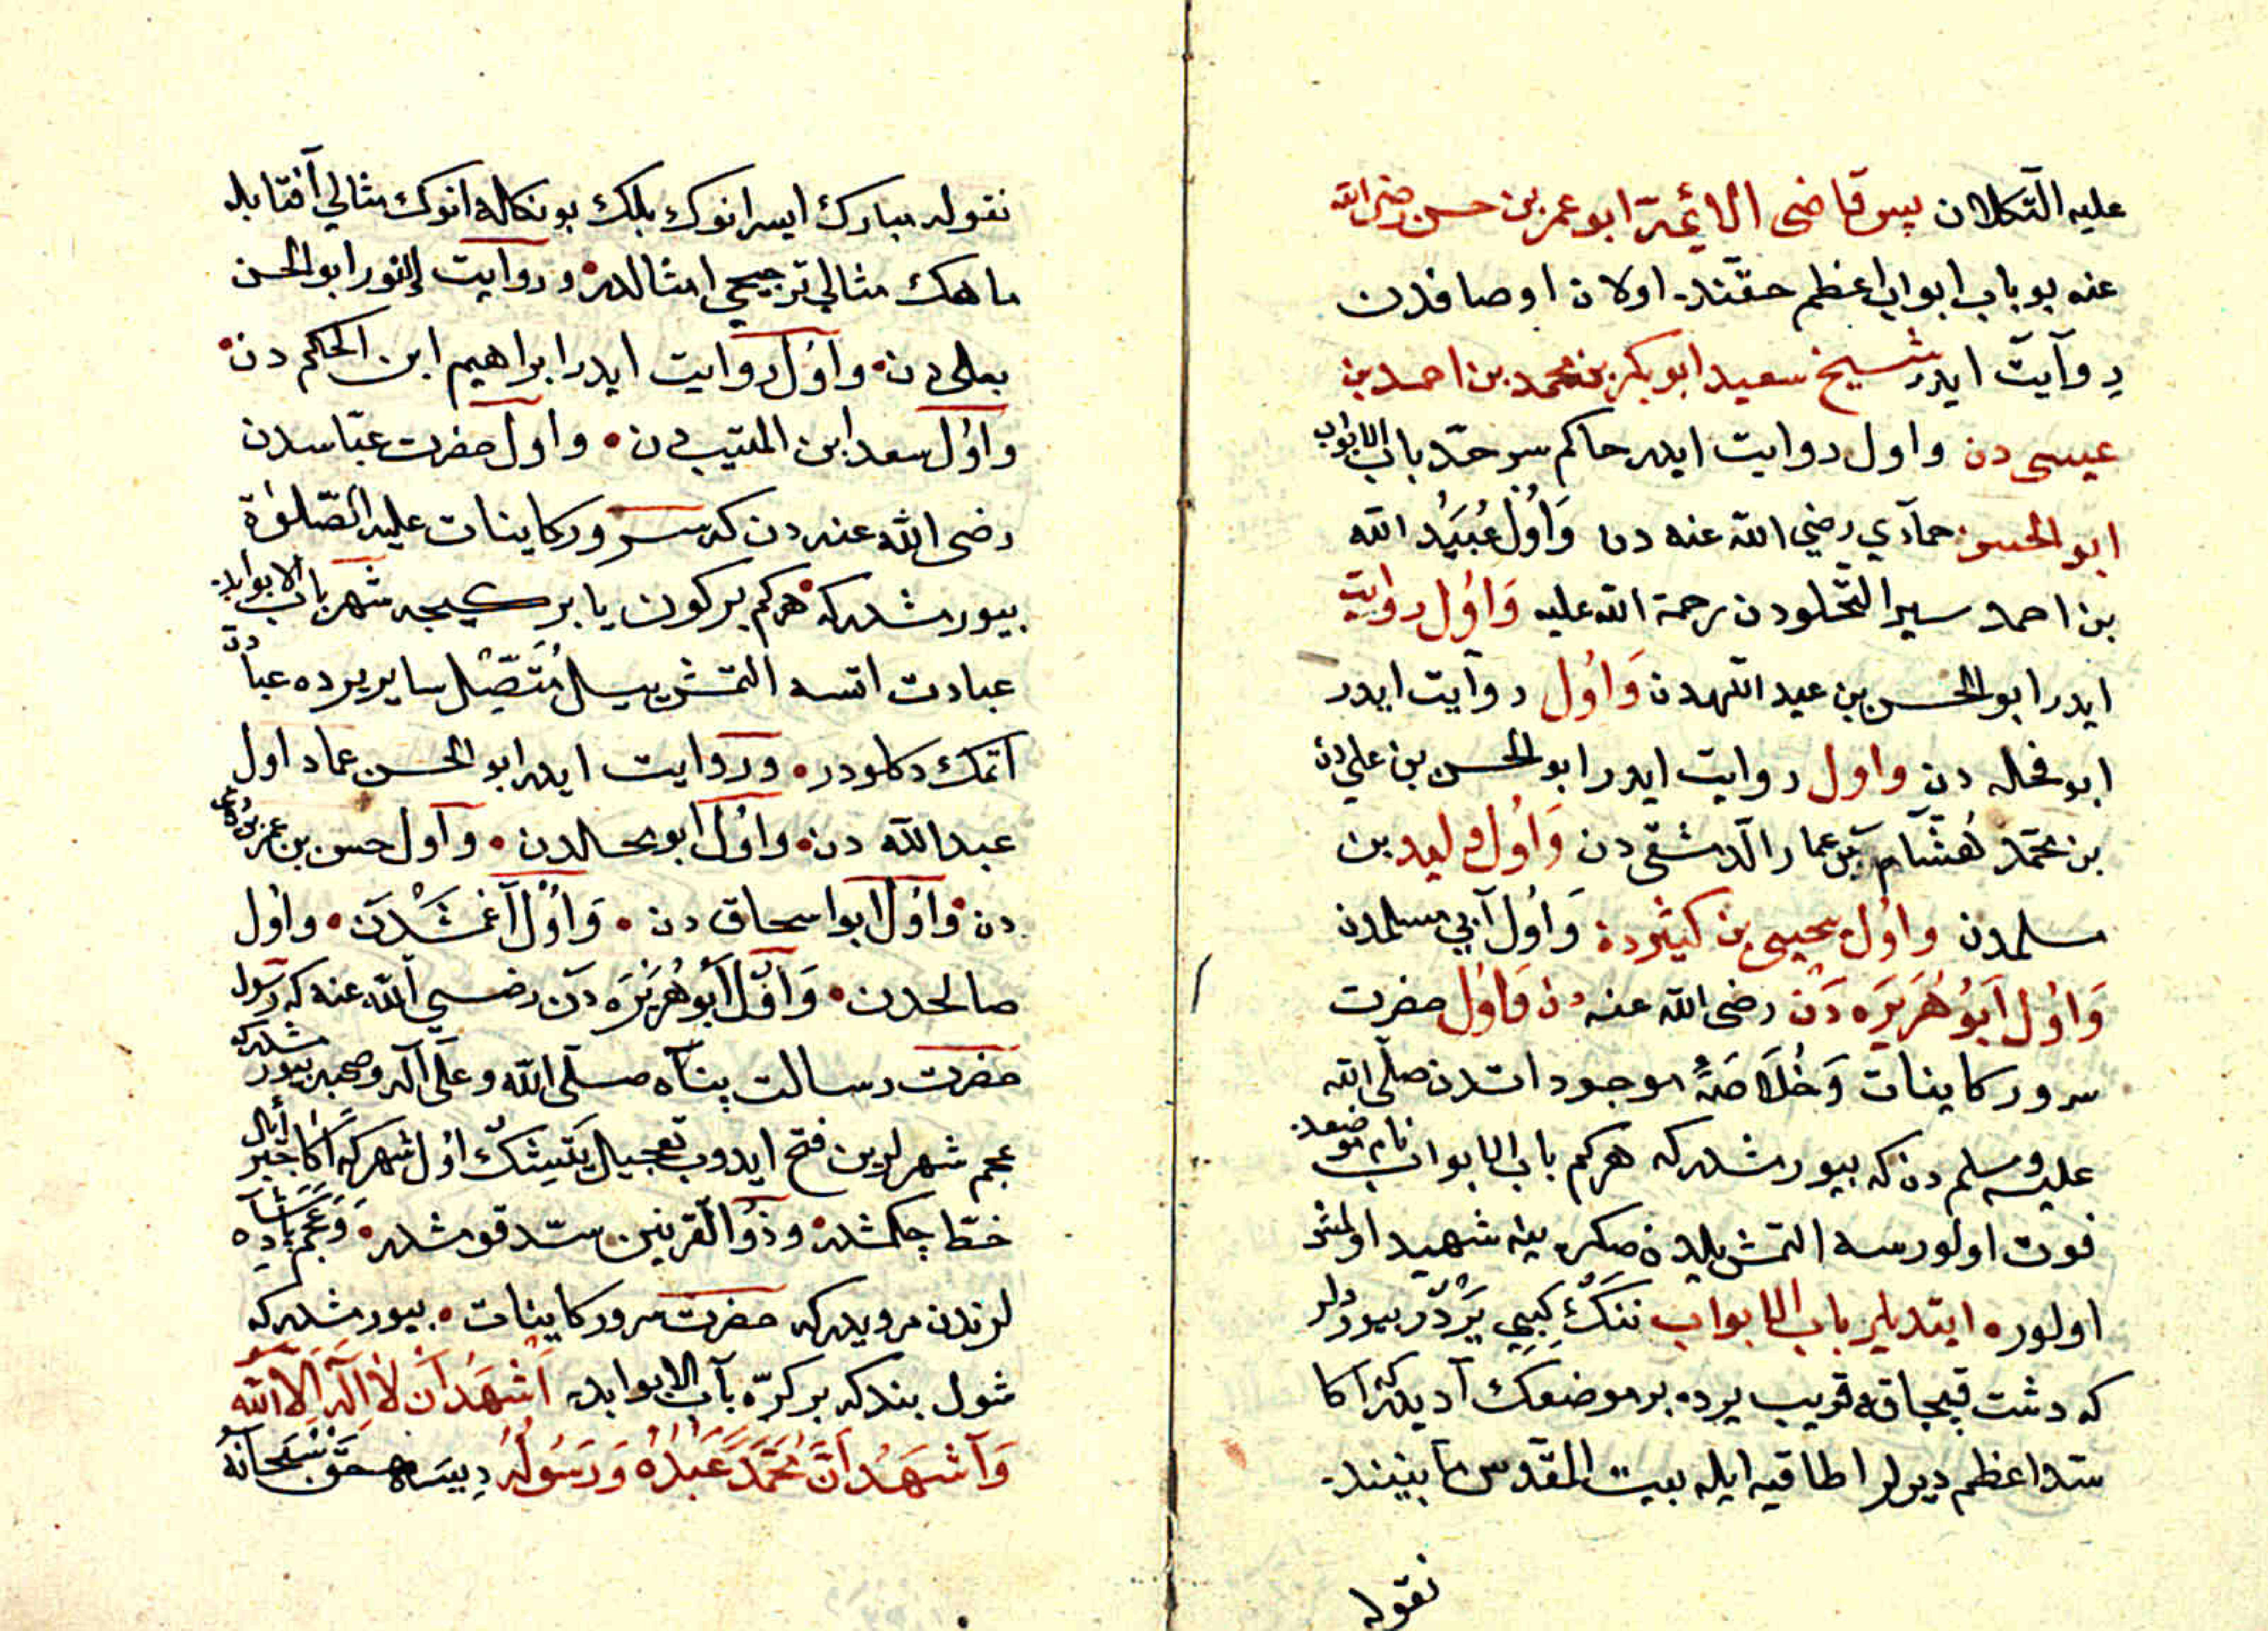 عليه التكلان پس قاضى الائمة ابو عمر بن حسن رضى الله
عنه بو باب ابواب اعظم حقنده اولان اوصافدن
روآيت ايدر شيخ سعيد ابو بكر بن محمد بن احمد بن
عيسى دن واول روايت ايدر حاكم سرحد باب الابواب
ابو الحسن حمآدي رضي الله عنه دن وَاُول عُبَيْد الله
بن احمد سير دن رحمة الله عليه وَاوُل روايت
ايدر ابو الحسن بن عبد اللهدن وَاوُل روآيت ايدر
ابو دن واول روايت ايدر ابو الحسن بن علي دن
بن محمّد هُشّام بن عمار الدمشقى دن وَاوُل وليد بن
مسلمدن واوُل يحيى بن كثير دن وَاوُل آبي مسلمدن
وَاوُل اَبوُ هُرَيْرَه دَنْ رضى الله عنه دن وَاوُل حضرت
سرور كاينات وَخُلَاصَهٔ موجوداتدن صلّى الله
عليه وسلم دن كه بيورمشدركه هركم باب الابواب نام موضعده
فوت اولورسه التمش بيله شهيد اولمش
اولور ابتديلر باب الابواب ننك كِبِي يَرْدُر بيورديلر
كه دشت قپچاقه قريب يرده بر موضعك آديدركه آكا
سدّ اعظم ديرلر انطاقيه ايله بيت المقدّس مآبيننده
نقوله
نقوله مبارك ايسه انوك بلكه بو نكاله انوك مثالي آفتابله
ماهك مثالي ترجيحي امثالدر وروايت ابو الحسن
يعلى دن واوُل روايت ايدر ابراهيم ابن الحكم دن
واوُل سعد ابن المسيب دن واول حضرت عبّاسدن
رضى الله عنه دن كه سرور كاينات عليه الصّلوٰة
بيورمشدركه هركم بر كون يا بر كيجه شهر باب الابوابده
عبادت اتسه التمش ييل مُتَّصِل ساير يرده عبادت
اتمك دكلودر وروايت ايدر ابو الحسن عماد اول
عبد الله دن واوُل ابو دن وآول حسن بن عمر
دن واوُل ابو اسحاق دن وَاوُل آغمشدَن واوُل
صالحدن وَاوُل اَبُو هُرَيْرَه دن رضى الله عنه كه رسول
حضرت رسالت پناه صلّى الله وعلى آله وصحبه بيورمشدركه
عجم شهرلرين فتح ايدوب تعجيل يتيشك اوُل شهركه آكا جبر أئيل
خطّ چكمشدر وذُو القرنين سدّ قومشدر وَعَجم پادشاه
لرندن مرويدركه حضرت سرور كاينات بيورمشدركه
شول بنده كه بر كرّه باب الابوابده اَشْهَدُ اَنْ لَا اِلٰهَ اِلَّا الله
وَاَشْهَدُ اَنَّ مُحَمَّدً عَبْدُهُ وَرَسُولُهُ دِيسَه حق سُبْحَانَهُ